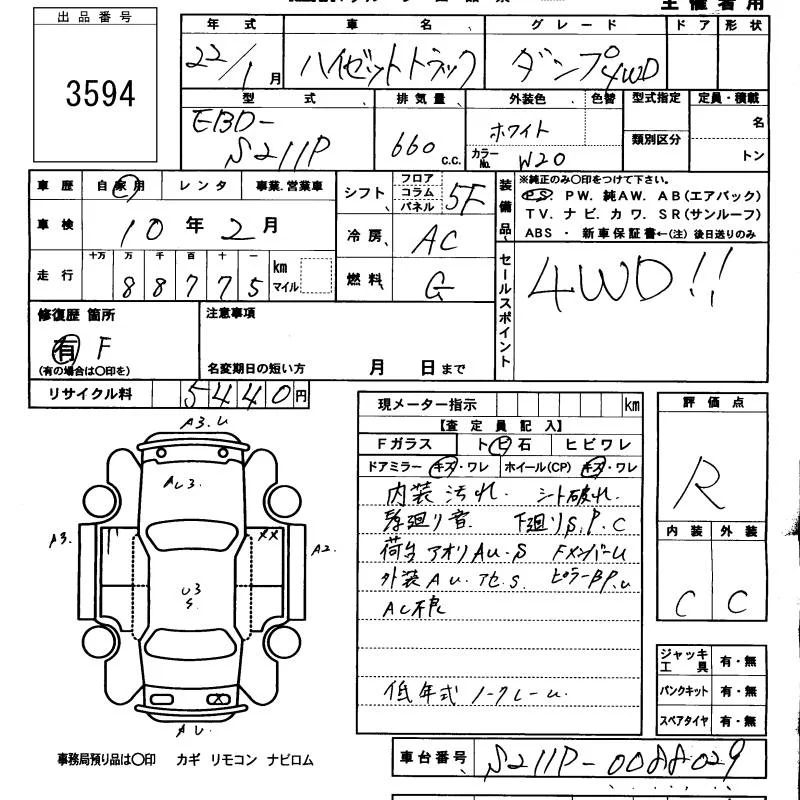 主催者用
出品番号
3594
年式 車名 グレード ドア 形状
22/1月 ハイゼットトラック ダンプ4WD
型式 排気量 外装色 色替 型式指定 定員・積載
EBD-S211P 660c.c. ホワイト 類別区分 名
カラーNo. W20 トン
車歴 自家用 レンタ 事業.営業車
車検 10年2月
走行 十万 万 千 百 十 一
88775 km マイル
シフト フロア コラム パネル 5F
冷房 AC
燃料 G
装備品
※純正のみ〇印をつけて下さい。
P.S. PW. 純AW. AB(エアバック)
TV. ナビ. カワ. SR(サンルーフ)
ABS ・ 新車保証書←(注) 後日送りのみ
セールスポイント
4WD!!
修復歴 箇所
有 F
(有の場合は〇印を)
注意事項
名変期日の短い方 月 日まで
リサイクル料 5440円
現メーター指示 km
【査定員記入】
Fガラス トビ石 ヒビワレ
ドアミラー キズ・ワレ ホイール(CP) キズ・ワレ
内装汚れ. シト破れ.
廻り音 下廻りS.P.C
荷台アオリAU.S FメンバーU
外装AU.アセ.S. ピラーBP.U
AC不良
低年式ノークレーム.
評価点
R
内装 外装
C C
ジャッキ工具 有・無
パンクキット 有・無
スペアタイヤ 有・無
A3.U
AU3.
A3.
XX
A2.
U3
S.
X
AU.
事務局預り品は〇印 カギ リモコン ナビロム
車台番号 S211P-0088029